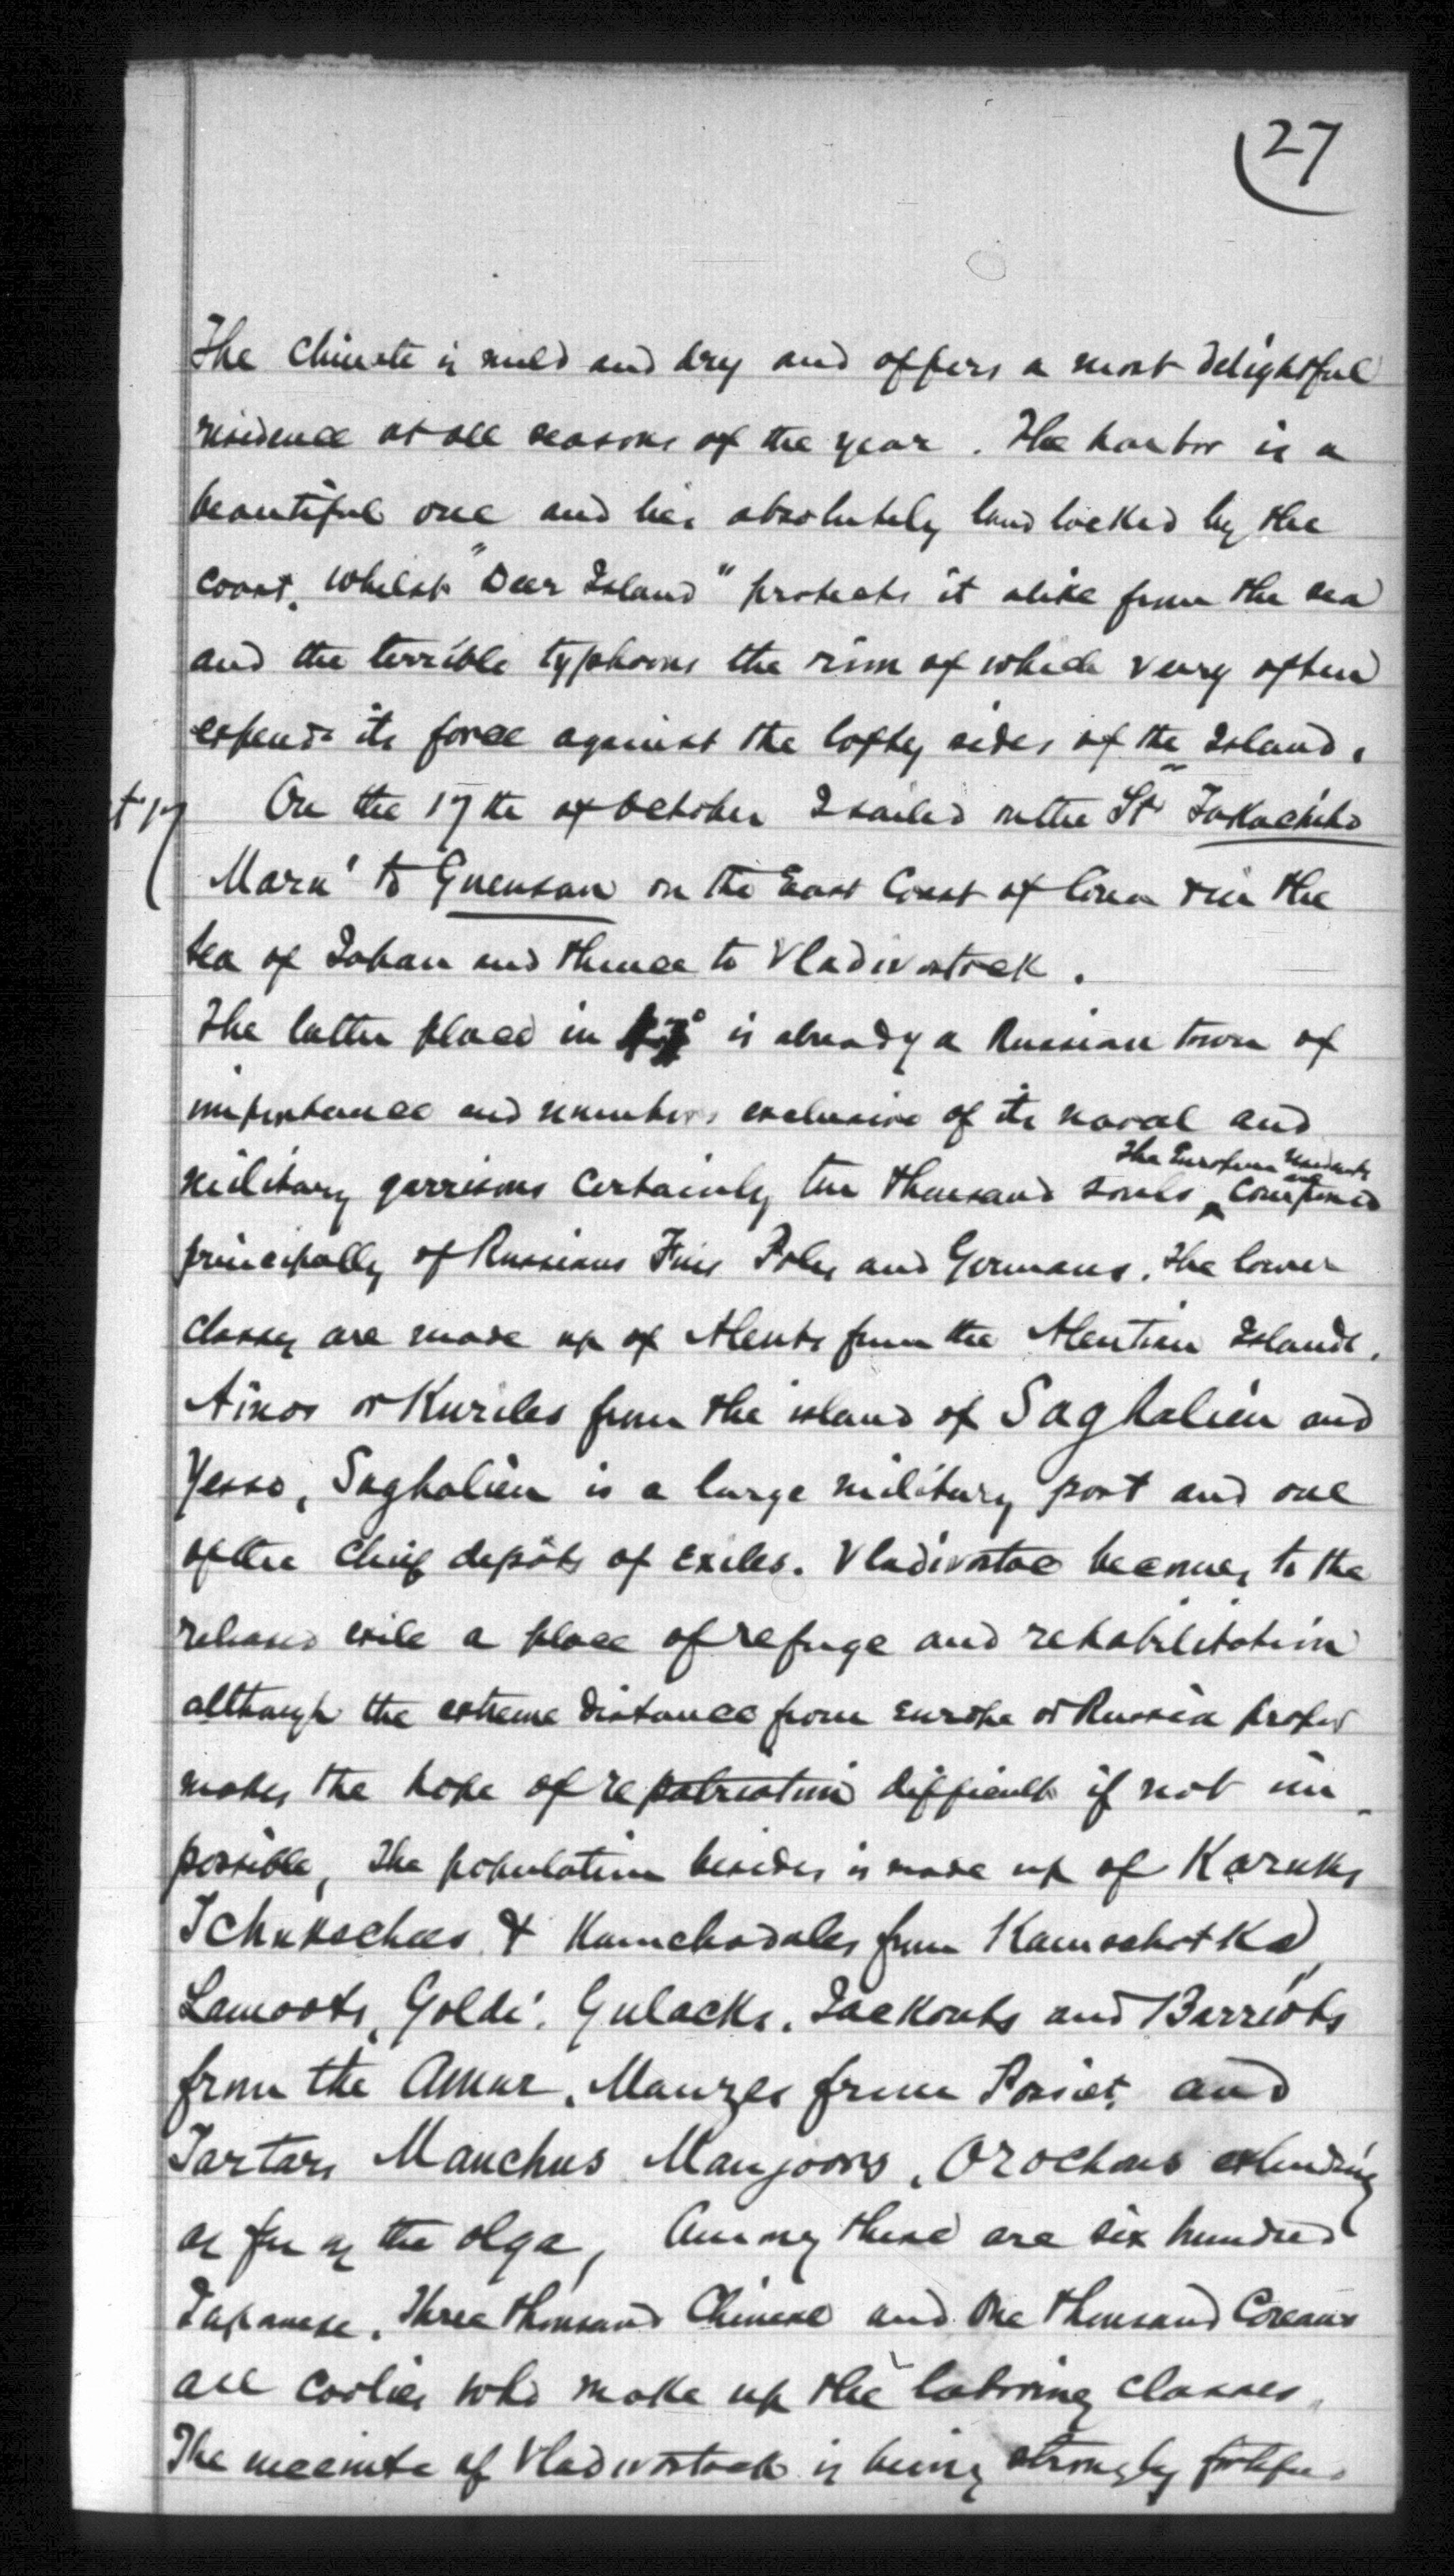 27
The climate is mild and dry and offers a most delightful
residence at all seasons of the year. The harbor is a
beautiful one and lies absolutely land locked by the
coast, whilst "Deer Island" protects it alike from the sea
and the terrible typhoons the rim of which very often
expends its force against the lofty sides of the Island.
On the 17th of October I sailed on the St "Takachiho
Maru" to Guensan on the East Coast of Corea in the
Sea of Japan and thence to Vladivostock.
The latter place in is already a Russian town of
importance and numbers exclusive of its naval and
military garrisons certainly ten thousand souls
The European
are composed
principally of Russians Fins Poles and Germans. The lower
classes are made up of Aleuts from the Aleutian Islands,
Ainos or Kuriles from the island of Saghalien and
Yesso, Saghalien is a large military post and one
of the chief depôts of exiles. Vladivostoc becomes to the
released exile a place of refuge and rehabilitation
although the extreme distance from Europe or Russia proper
makes the hope of repatriation difficult if not im-
possible, The population besides is made up of Karaks
Tchukschees & Kamchadales from Kamschatka
Lamoots, Goldi, Gulacks, Jackouts and Barriots
from the Amur, Manzes from Possiet, and
Tartars Manchus Mangoons, Orochons extending
as far as the Olga, Among these are six hundred
Japanese, Three thousand Chinese and One thousand Coreans
all coolies who make up the laboring classes,
The of Vladivostock is being strongly fortified